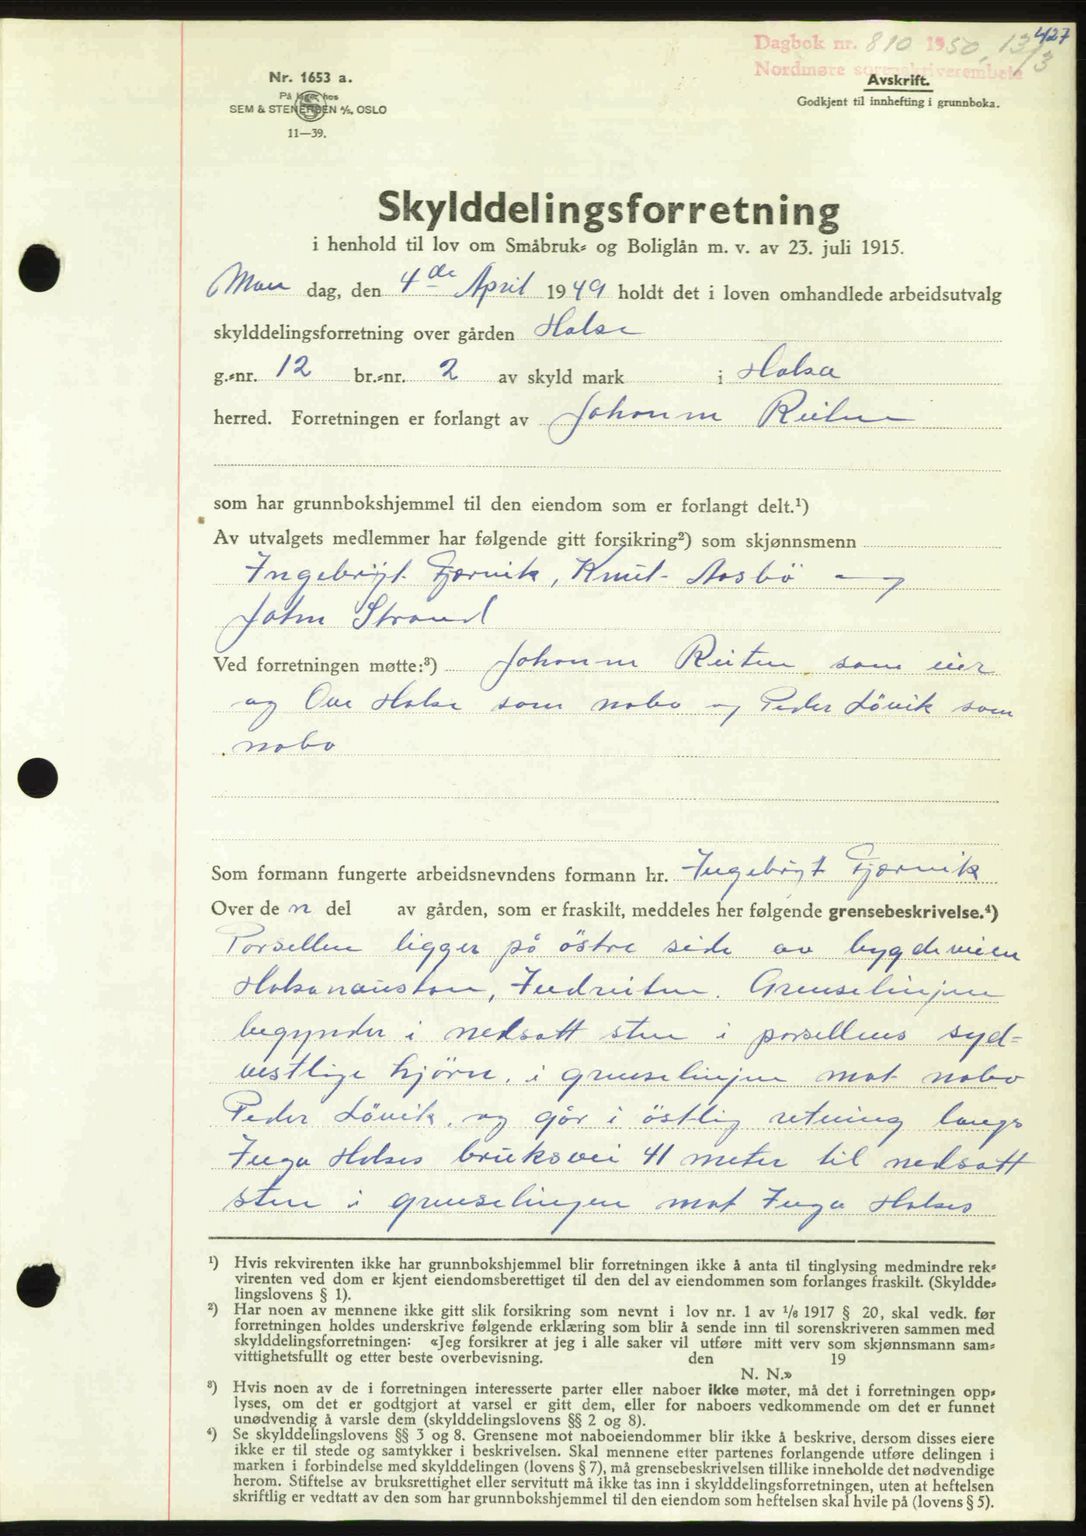 427
Dagbok nr. 810 1950, 13/3
Nordmøre sorenskriverembete
Nr. 1653 a.
På lager hos
SEM & STENERSEN A/S, OSLO
11—39.
Avskrift.
Godkjent til innhefting i grunnboka.
Skylddelingsforretning
i henhold til lov om Småbruk- og Boliglån m. v. av 23. juli 1915.
Man dag, den 4de April 1949 holdt det i loven omhandlede arbeidsutvalg
skylddelingsforretning over gården Halse
g.-nr. 12 br.-nr. 2 av skyld mark i Halsa
herred. Forretningen er forlangt av Johann Reiten
som har grunnbokshjemmel til den eiendom som er forlangt delt.¹)
Av utvalgets medlemmer har følgende gitt forsikring²) som skjønnsmenn
Ingebrigt Fjærvik, Knut Aasbö og
John Strand
Ved forretningen møtte:³) Johann Reiten som eier
og Ove Halse som nabo og Peder Lövik som
nabo
Som formann fungerte arbeidsnevndens formann hr. Ingebrigt Fjærvik
Over de n del av gården, som er fraskilt, meddeles her følgende grensebeskrivelse.⁴)
Parsellen ligger på östre side av bygdeveien
Halsanaustan, Indreiten. Grenselinjen
begynder i nedsatt sten i parsellens syd-
vestlige hjörne, i grenselinjen mot nabo
Peder Lövik, og går i östlig retning langs
Inga Halses bruksvei 41 meter til nedsatt
sten i grenselinjen mot Inga Halses
¹) Hvis rekvirenten ikke har grunnbokshjemmel blir forretningen ikke å anta til tinglysing medmindre rek-
virenten ved dom er kjent eiendomsberettiget til den del av eiendommen som forlanges fraskilt. (Skyldde-
lingslovens § 1).
²) Har noen av mennene ikke gitt slik forsikring som nevnt i lov nr. 1 av 1/6 1917 § 20, skal vedk. før
forretningen holdes underskrive følgende erklæring som blir å sende inn til sorenskriveren sammen med
skylddelingsforretningen: «Jeg forsikrer at jeg i alle saker vil utføre mitt verv som skjønnsmann sam-
vittighetsfullt og etter beste overbevisning. den 19
N. N.»
³) Hvis noen av de i forretningen interesserte parter eller naboer ikke møter, må det i forretningen opp-
lyses, om det er godtgjort at varsel er gitt dem, eller for naboers vedkommende om det er funnet
unødvendig å varsle dem (skylddelingslovens §§ 2 og 8).
⁴) Se skylddelingslovens §§ 3 og 8. Grensene mot naboeiendommer blir ikke å beskrive, dersom disses eiere
ikke er til stede og samtykker i beskrivelsen. Skal mennene etter partenes forlangende utføre delingen i
marken i forbindelse med skylddelingen (lovens § 7), må grensebeskrivelsen tillike inneholde det nødvendige
herom. Stiftelse av bruksrettighet eller servitutt må ikke tas inn i skylddelingsforretningen, uten at heftelsen
skriftlig er vedtatt av den som har grunnbokshjemmel til den eiendom som heftelsen skal hvile på (lovens § 5).